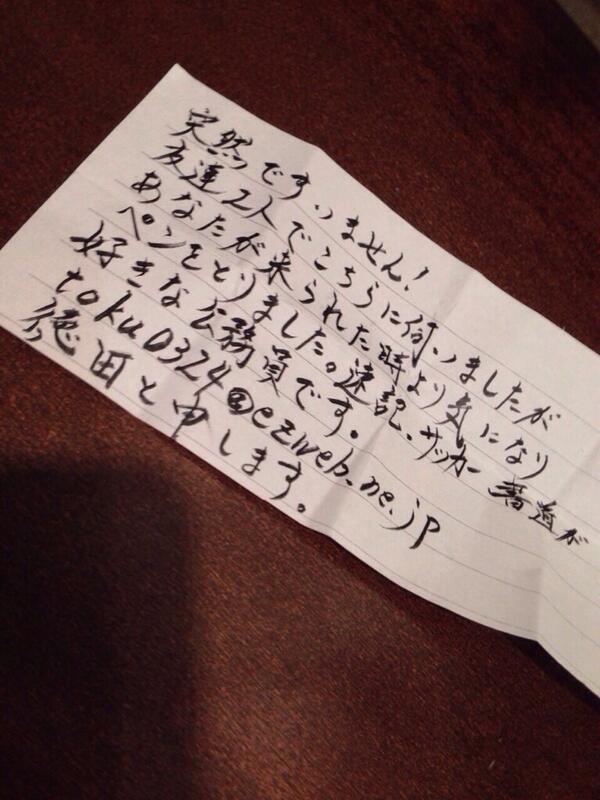 突然ですいません!
友達2人でこちらに伺いましたが
あなたが来られた時より気になり
ペンをとりました。速記、サッカー 書道が
好きな公務員です。
toku0324@ezweb.ne.jp
徳田と申します。